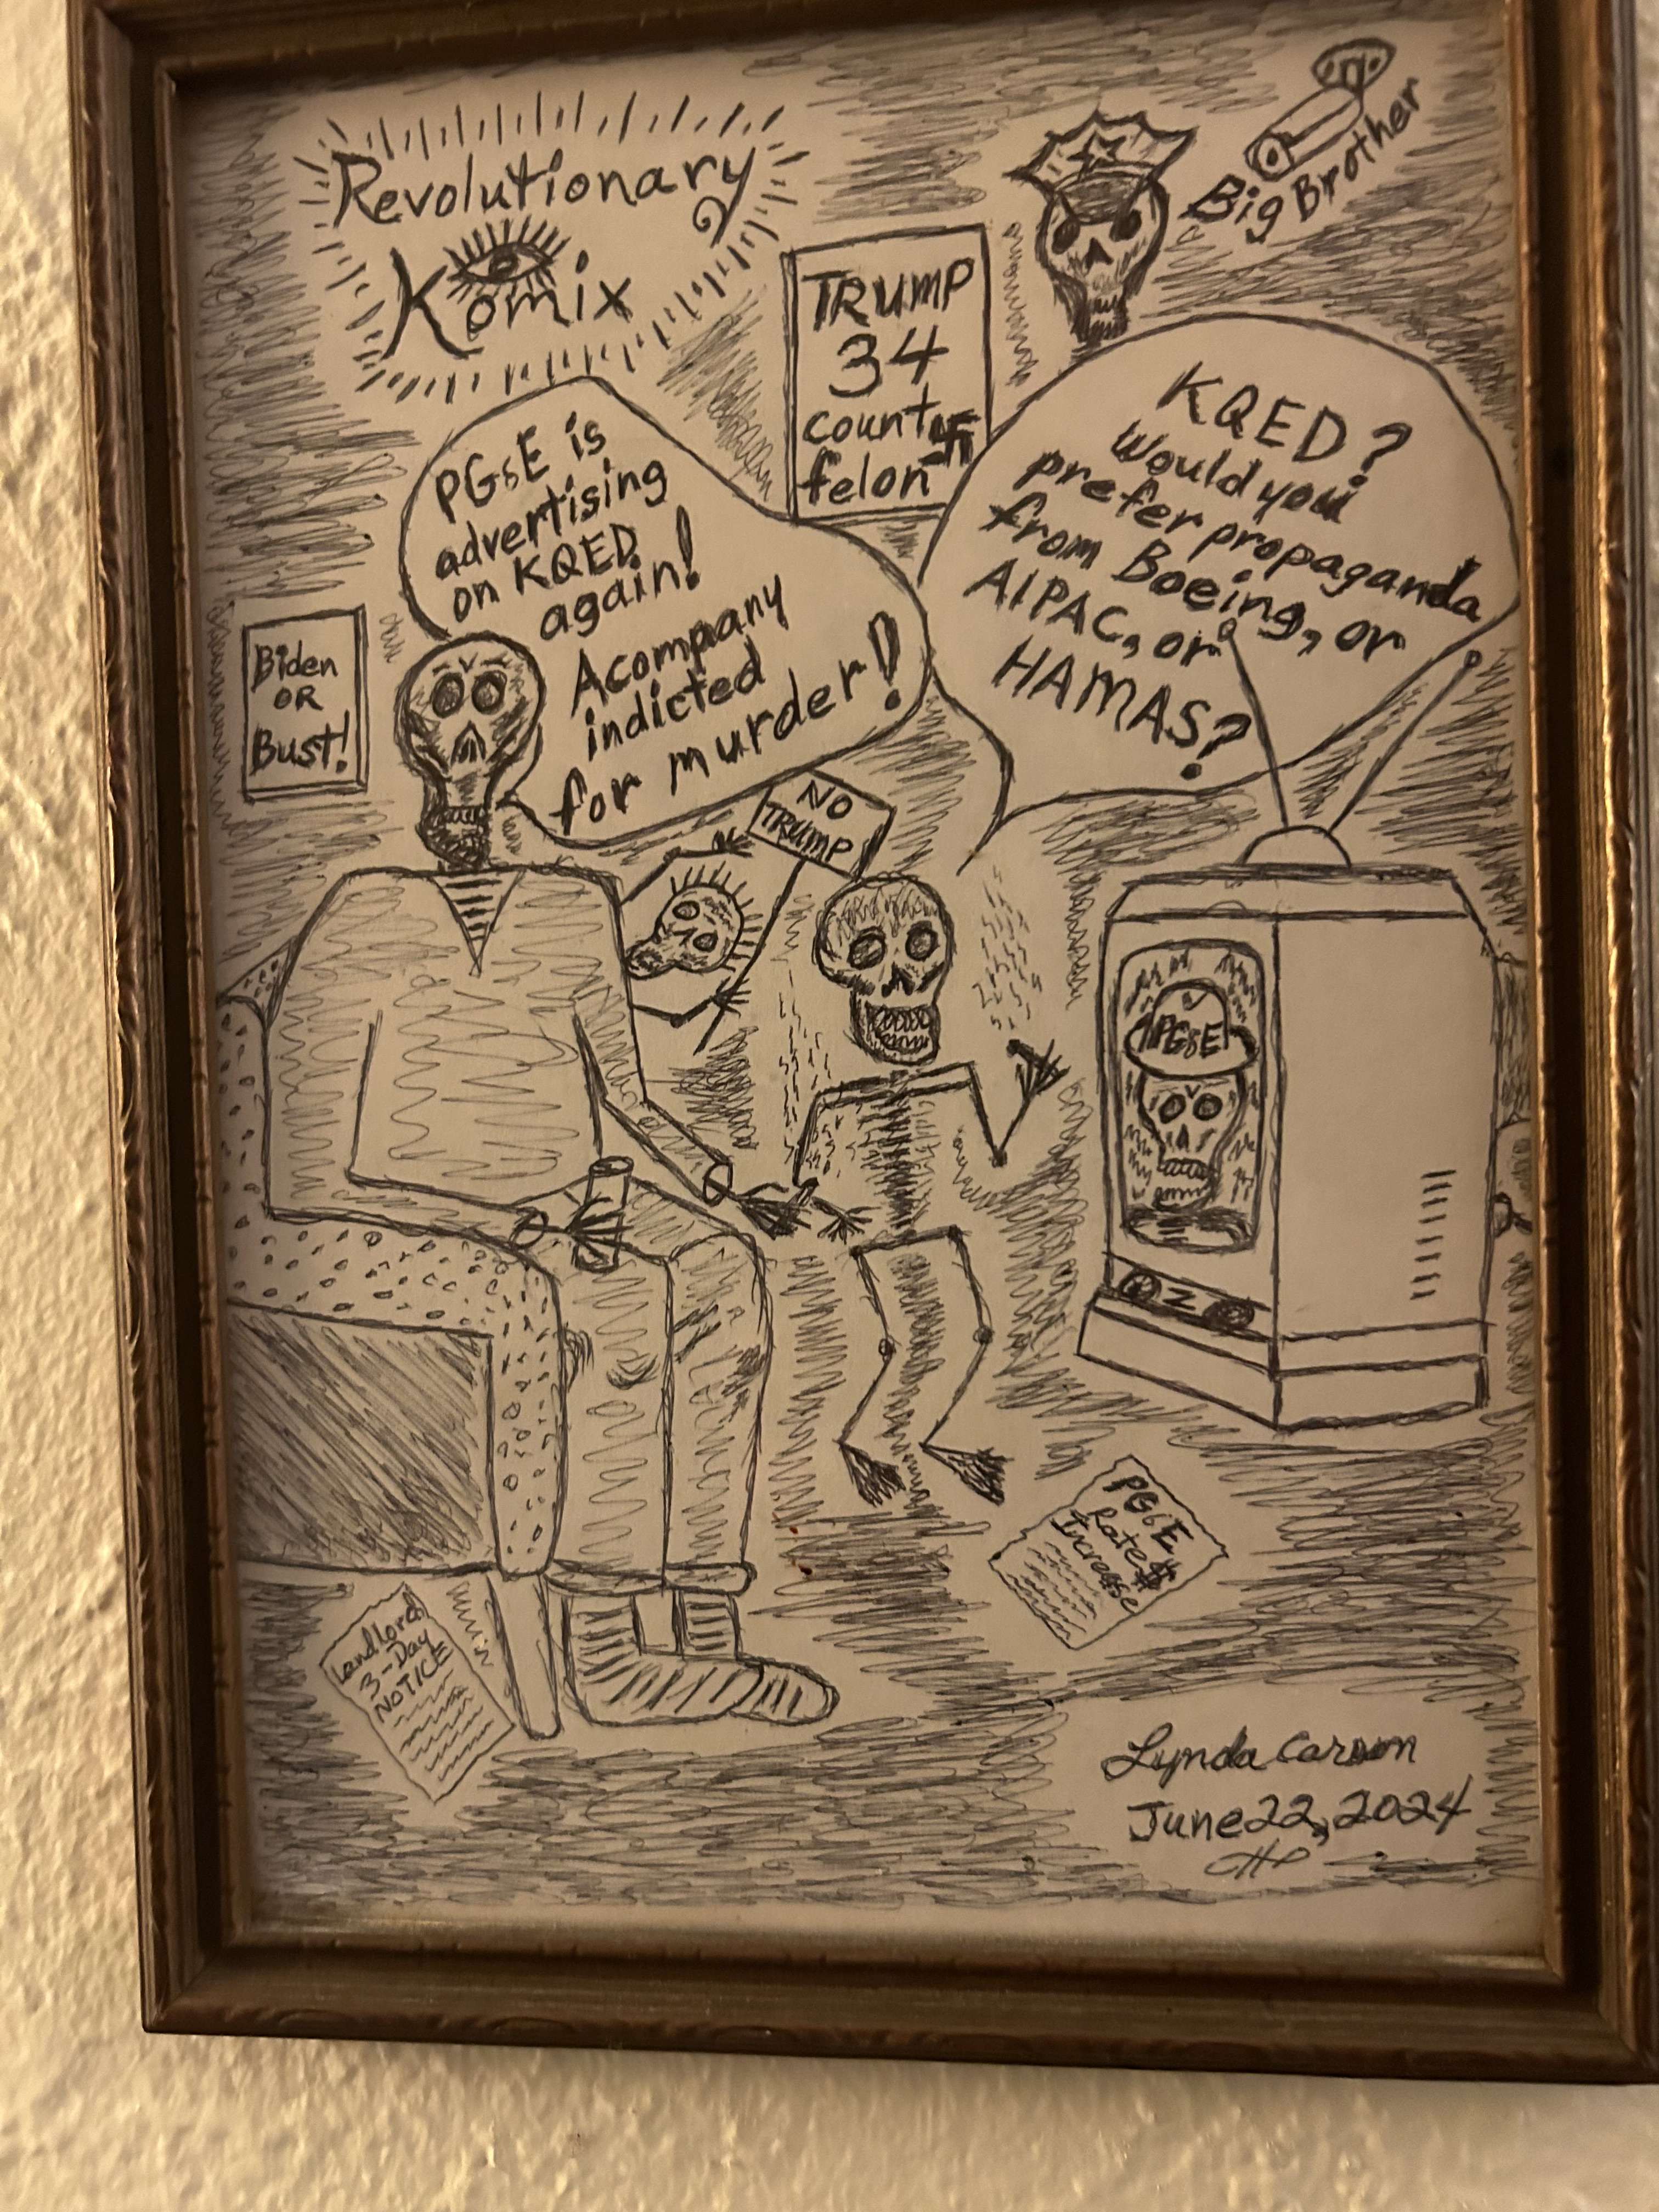 Revolutionary
Komix
Big Brother
TRUMP
34
count
felon
PG&E is
advertising
on KQED
again!
A company
indicted
for murder!
KQED?
Would you
prefer propaganda
from Boeing, or
AIPAC, or
HAMAS?
Biden
OR
Bust!
NO
TRUMP
PG&E
2
PG&E
Rate
Increase
Landlord
3-Day
NOTICE
Lynda Carson
June 22, 2024